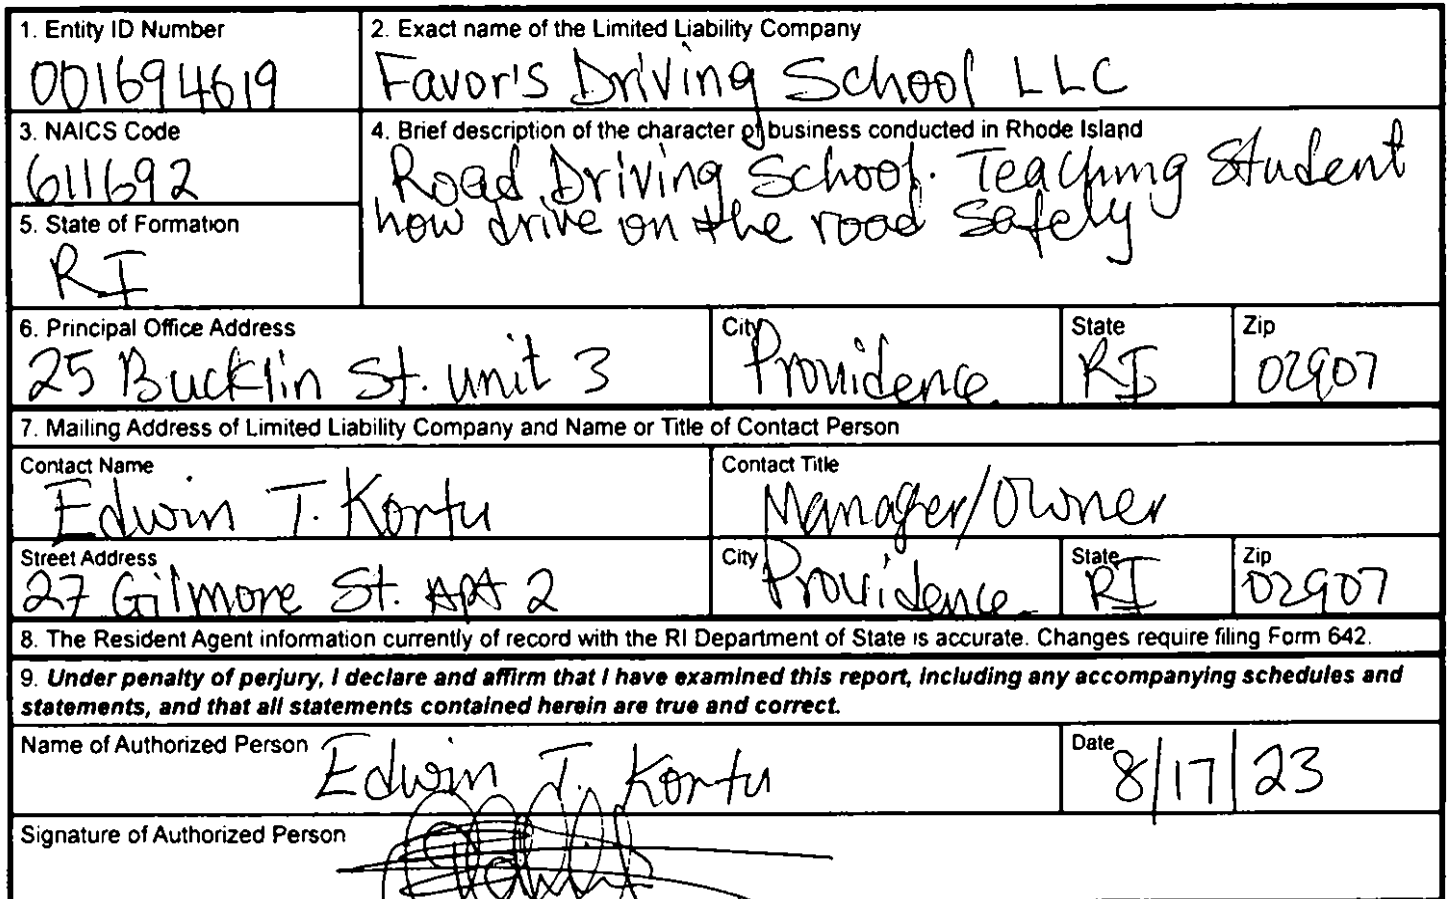 1. Entity ID Number
001694619
2. Exact name of the Limited Liability Company
Favor's Driving School LLC
3. NAICS Code
611692
4. Brief description of the character of business conducted in Rhode Island
Road Driving School. Teaching Student
how drive on the road safely
5. State of Formation
RI
6. Principal Office Address
25 Bucklin St. unit 3
City
Providence
State
RI
Zip
02907
7. Mailing Address of Limited Liability Company and Name or Title of Contact Person
Contact Name
Edwin T. Kortu
Contact Title
Manager/Owner
Street Address
27 Gilmore St. Apt 2
City
Providence
State
RI
Zip
02907
8. The Resident Agent information currently of record with the RI Department of State is accurate. Changes require filing Form 642.
9. Under penalty of perjury, I declare and affirm that I have examined this report, including any accompanying schedules and
statements, and that all statements contained herein are true and correct.
Name of Authorized Person
Edwin T. Kortu
Date
8/17/23
Signature of Authorized Person